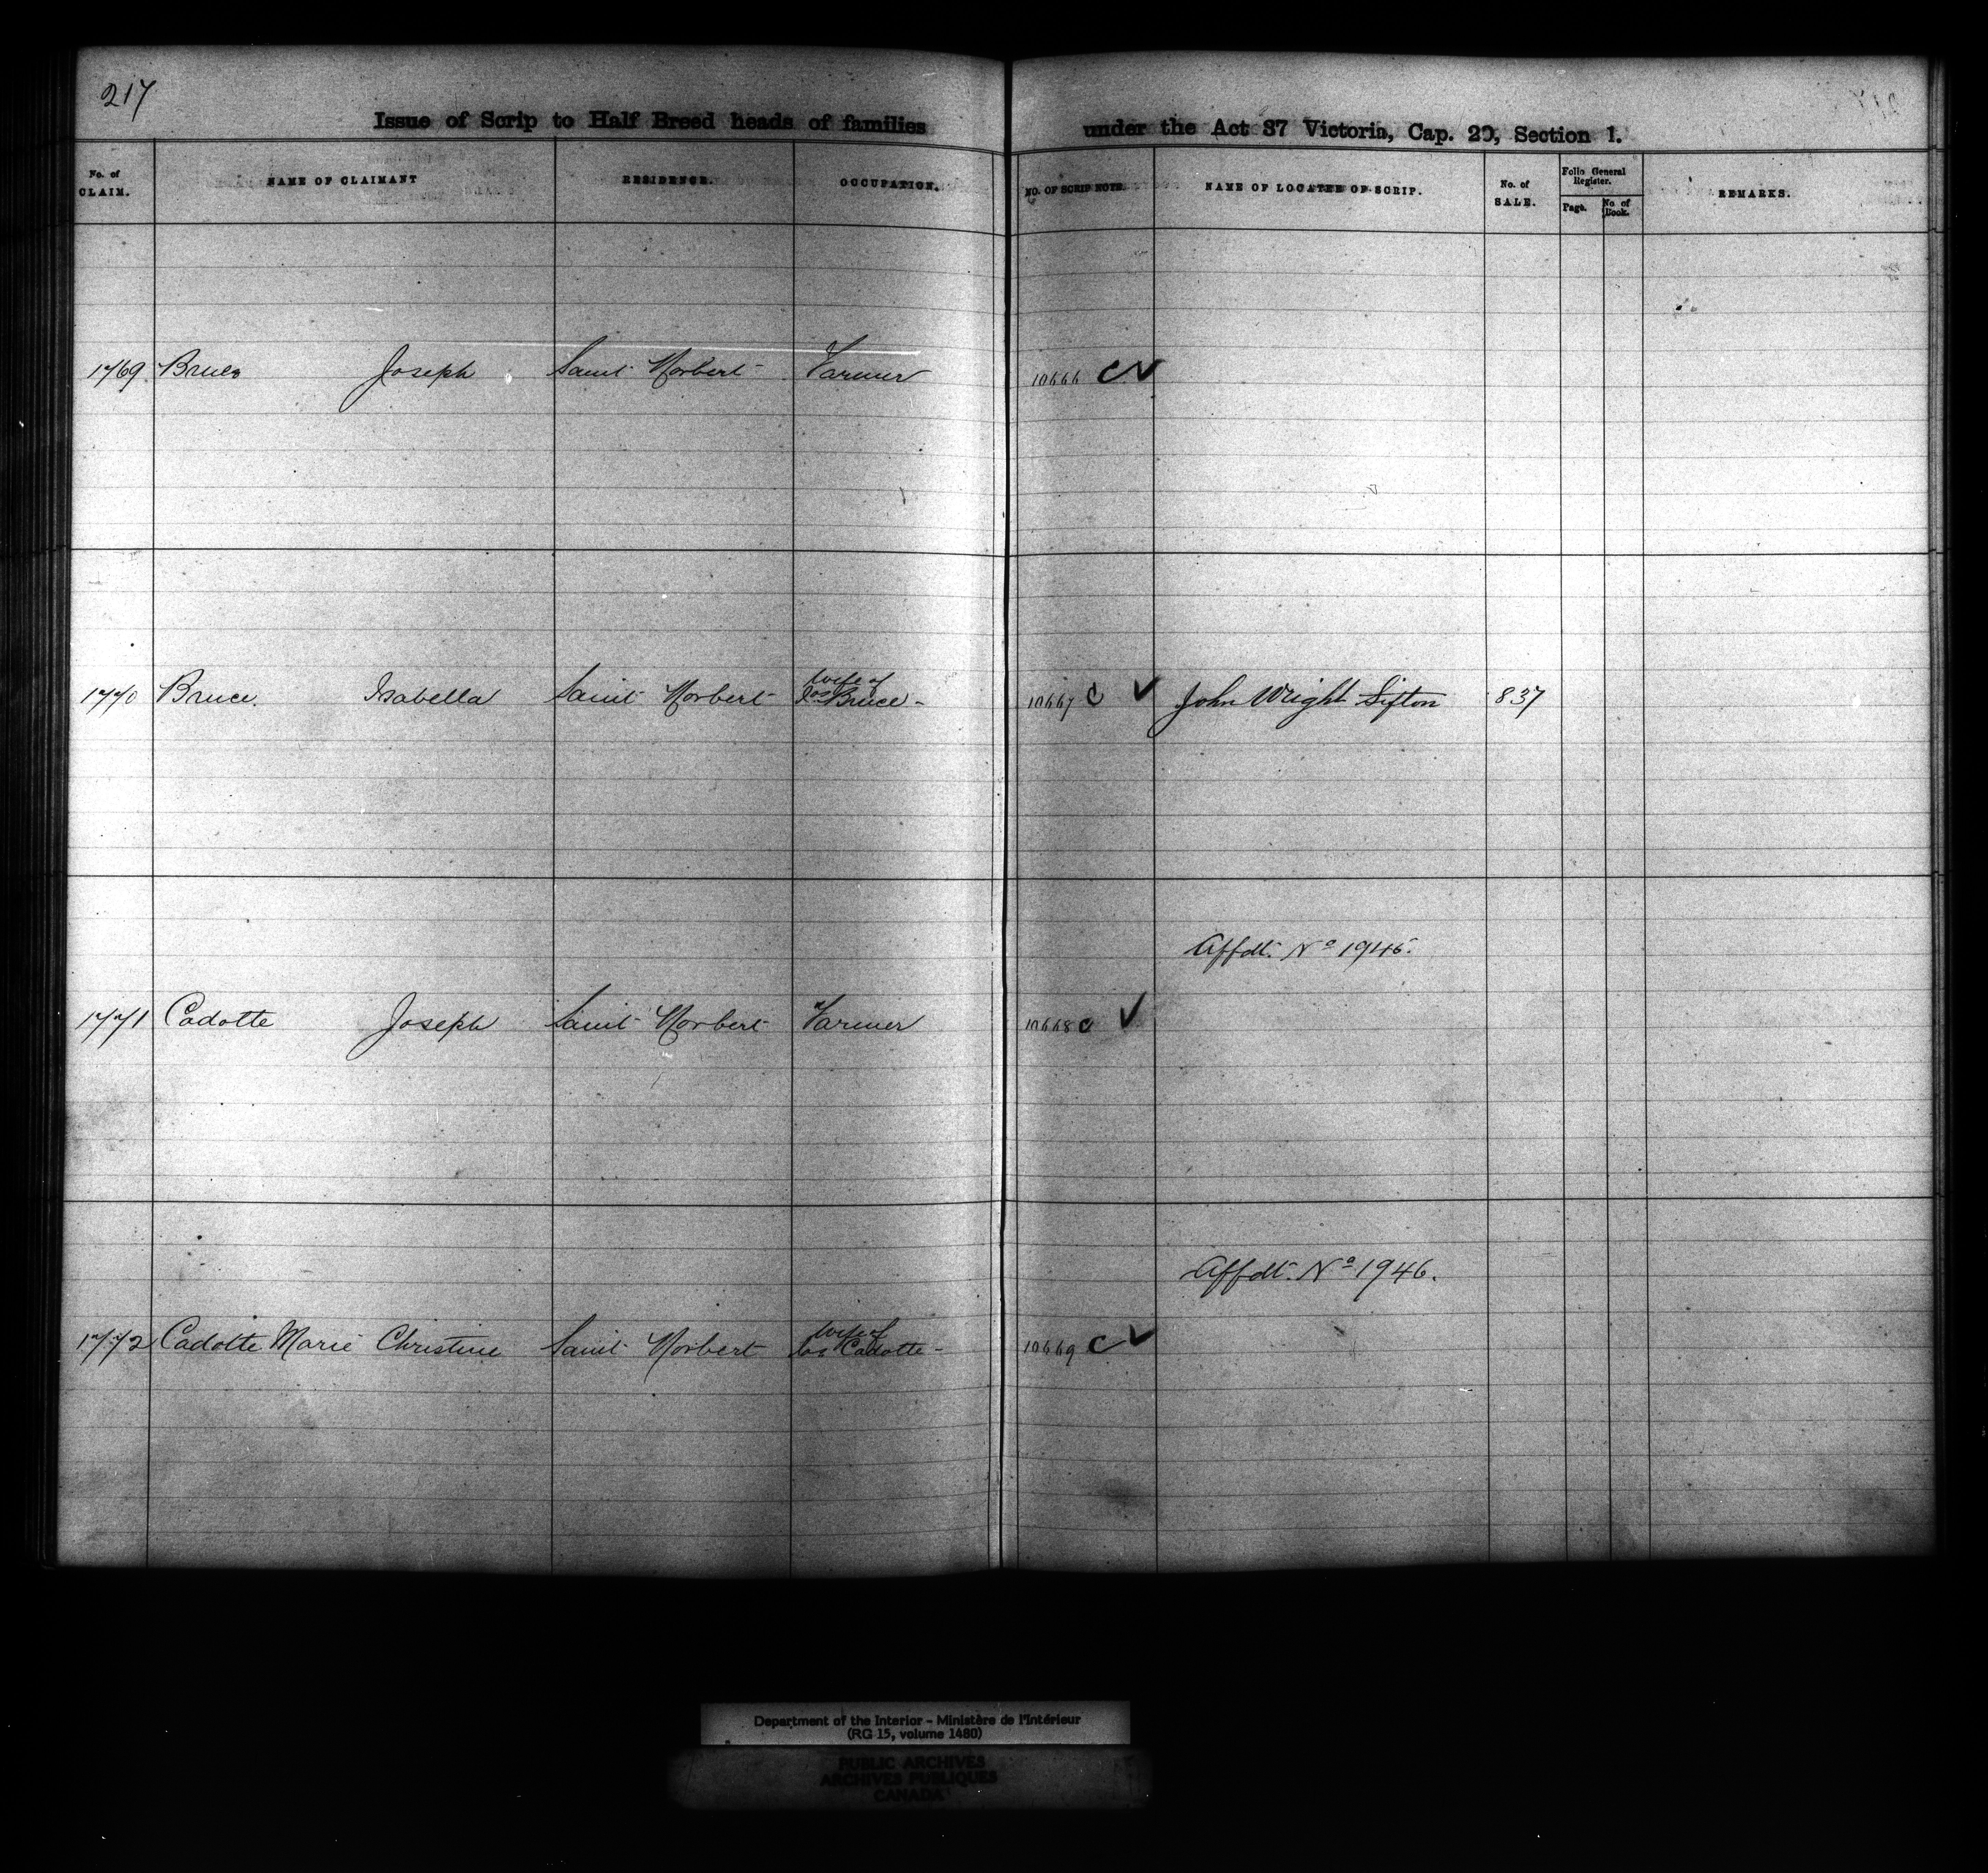 217
Issue of Scrip to Half Breed heads of families under the Act 37 Victoria, Cap. 20, Section 1.
No. of CLAIM. NAME OF CLAIMANT RESIDENCE. OCCUPATION. NO. OF SCRIP NOTE. NAME OF LOCATEE OF SCRIP. No. of SALE. Folio General Register. Page. No of Book. REMARKS.
1769 Bruce Joseph Saint Norbert Farmer 10666 C ✓
1770 Bruce. Isabella Saint Norbert wife of Jos Bruce - 10667 C ✓ John Wright Sifton 837
Affdt. No 1946.
1771 Cadotte Joseph Saint Norbert Farmer 10668 C ✓
Affdt. No 1946.
1772 Cadotte Marie Christine Saint Norbert wife of Jos Cadotte - 10669 C ✓
Department of the Interior - Ministère de l'Intérieur
(RG 15, volume 1480)
PUBLIC ARCHIVES
ARCHIVES PUBLIQUES
CANADA